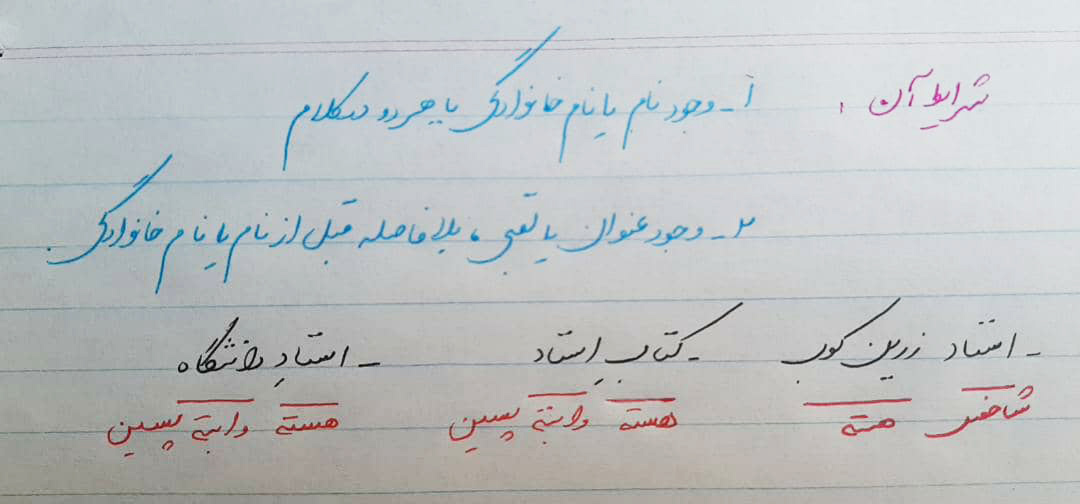 شرایط آن : ۱- وجود نام یا نام خانوادگی یا هر دو در کلام
۲- وجود عنوان یا لقبی ، بلافاصله قبل از نام یا نام خانوادگی .
- استاد زرین کوب - کتابِ استاد - استادِ دانشگاه
شاخص هسته هسته وابستهٔ پسین هسته وابستهٔ پسین